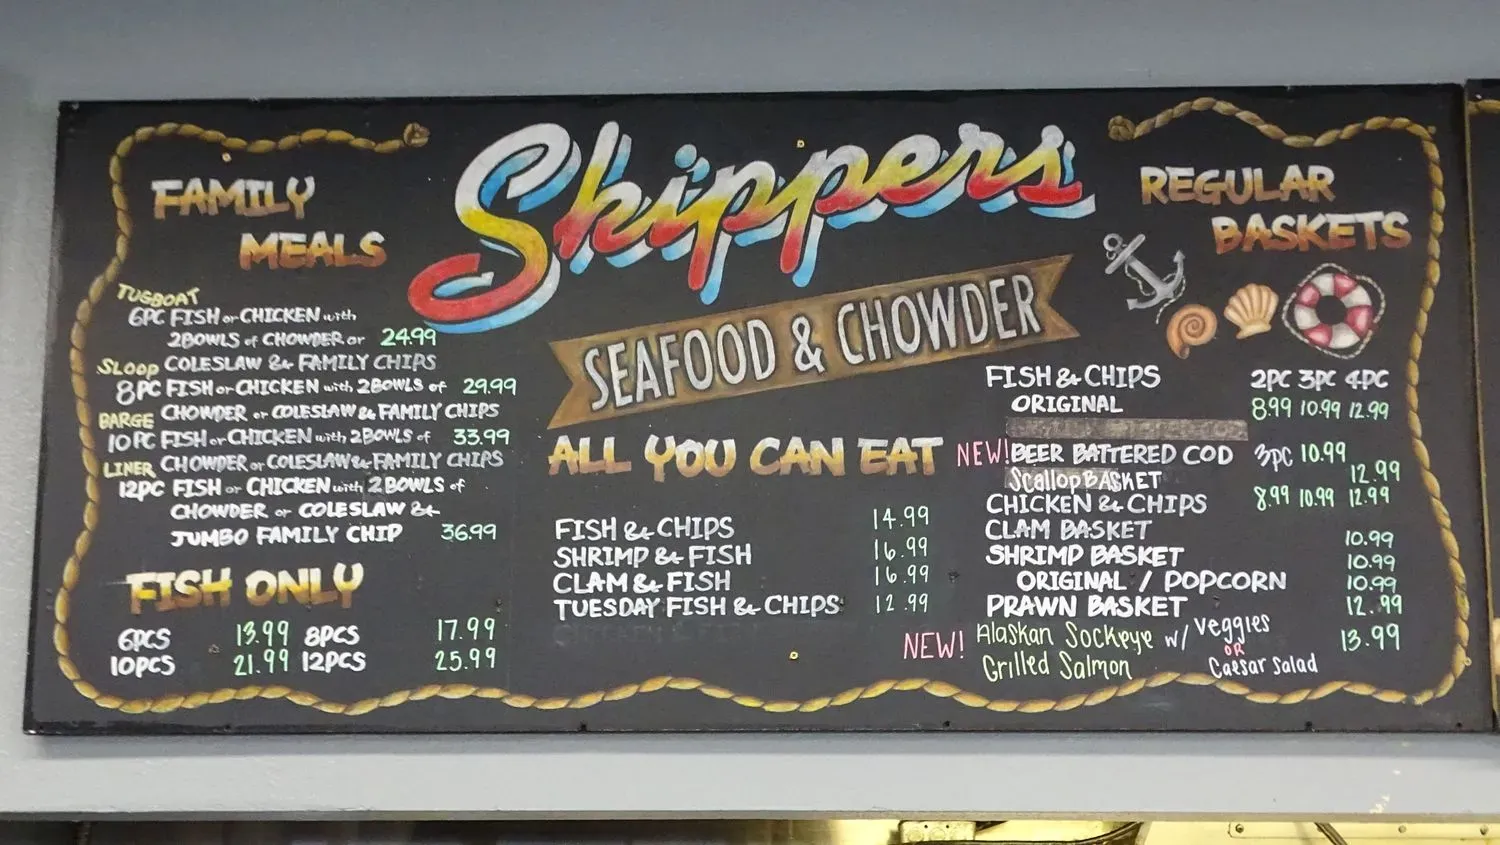 Skippers
SEAFOOD & CHOWDER
FAMILY
MEALS
TUGBOAT
6PC FISH or CHICKEN with
2BOWLS of CHOWDER or 24.99
SLOOP COLESLAW & FAMILY CHIPS
8PC FISH or CHICKEN with 2BOWLS of 29.99
BARGE CHOWDER or COLESLAW & FAMILY CHIPS
10PC FISH or CHICKEN with 2BOWLS of 33.99
LINER CHOWDER or COLESLAW & FAMILY CHIPS
12PC FISH or CHICKEN with 2BOWLS of
CHOWDER or COLESLAW &
JUMBO FAMILY CHIP 36.99
FISH ONLY
6PCS 13.99 8PCS 17.99
10PCS 21.99 12PCS 25.99
ALL YOU CAN EAT
FISH & CHIPS 14.99
SHRIMP & FISH 16.99
CLAM & FISH 16.99
TUESDAY FISH & CHIPS 12.99
REGULAR
BASKETS
FISH & CHIPS 2PC 3PC 4PC
ORIGINAL 8.99 10.99 12.99
NEW! BEER BATTERED COD 3PC 10.99
Scallop BASKET 12.99
CHICKEN & CHIPS 8.99 10.99 12.99
CLAM BASKET 10.99
SHRIMP BASKET 10.99
ORIGINAL / POPCORN 10.99
PRAWN BASKET 12.99
NEW! Alaskan Sockeye w/ Veggies 13.99
OR
Grilled Salmon Caesar Salad